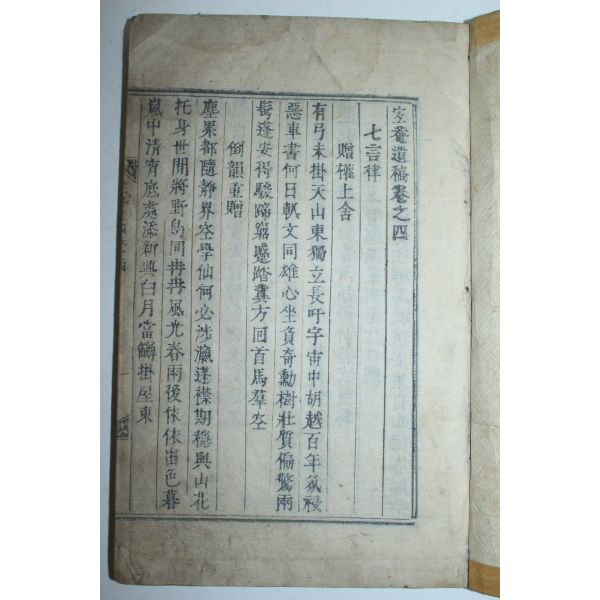 定菴遺稿卷之四
七言律
贈權上舍
有弓未掛天山東獨立長吁宇宙中胡越百年氛祲
惡車書何日軌文同雄心坐負奇勳樹壯質偏驚兩
鬂蓬安得駿蹄窮蹙踏冀方回首馬羣空
倒韻重贈
塵累都隨靜界空學仙何必涉瀛蓬襟期穩與山花
托身世閒將野鳥同冉冉風光春雨後依依峀色暮
嵐中清宵底處添新興白月當罇掛屋東